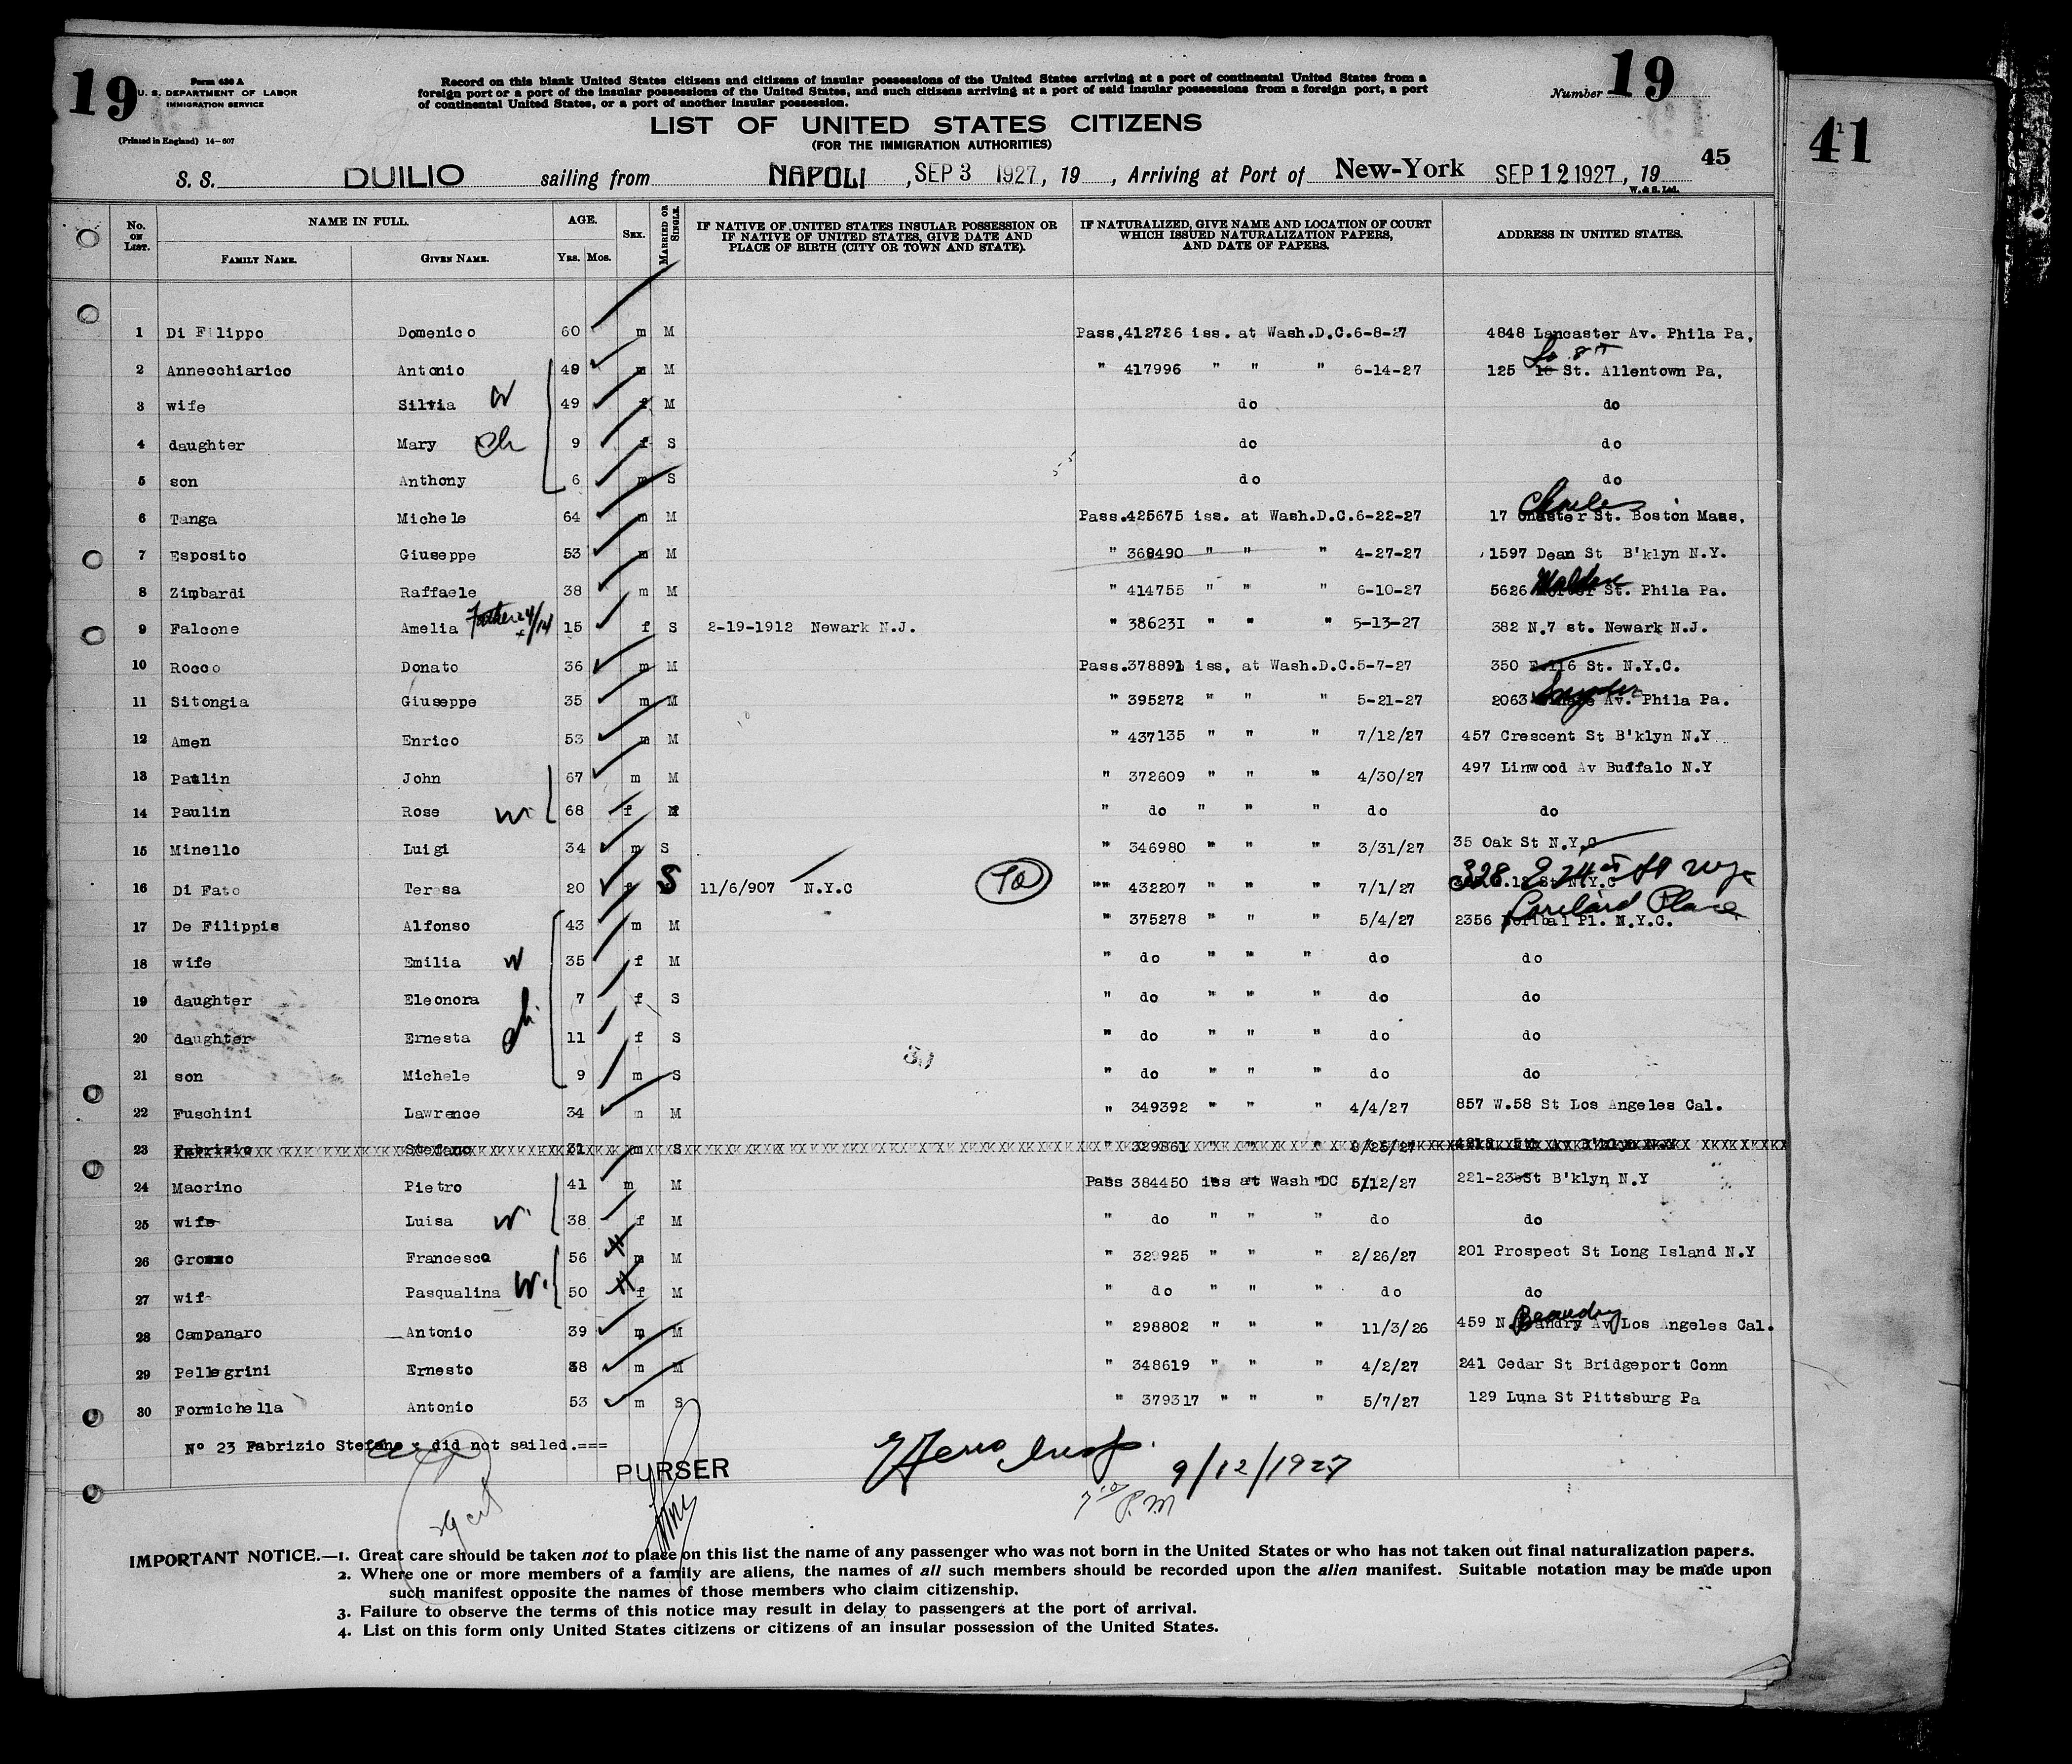 19
Form 630 A
U. S. DEPARTMENT OF LABOR
IMMIGRATION SERVICE
(Printed in England) 14-607
Record on this blank United States citizens and citizens of insular possessions of the United States arriving at a port of continental United States from a
foreign port or a port of the insular possessions of the United States, and such citizens arriving at a port of said insular possessions from a foreign port, a port
of continental United States, or a port of another insular possession.
Number 19
41
LIST OF UNITED STATES CITIZENS
(FOR THE IMMIGRATION AUTHORITIES)
45
S. S. DUILIO sailing from NAPOLI, SEP 3 1927, 19 , Arriving at Port of New-York SEP 12 1927, 19
W. & S. Ltd.
No. ON LIST. NAME IN FULL. FAMILY NAME. GIVEN NAME. AGE. YRS. MOS. SEX. MARRIED OR SINGLE. IF NATIVE OF UNITED STATES INSULAR POSSESSION OR IF NATIVE OF UNITED STATES, GIVE DATE AND PLACE OF BIRTH (CITY OR TOWN AND STATE). IF NATURALIZED, GIVE NAME AND LOCATION OF COURT WHICH ISSUED NATURALIZATION PAPERS, AND DATE OF PAPERS. ADDRESS IN UNITED STATES.
1 Di Filippo Domenico 60 m M Pass.412726 iss. at Wash.D.C.6-8-27 4848 Lancaster Av. Phila Pa,
2 Annecchiarico Antonio 49 m M " 417996 " " " 6-14-27 125 So 8th St. Allentown Pa,
3 wife Silvia W 49 f M do do
4 daughter Mary Ch 9 f S do do
5 son Anthony 6 m S do do
6 Tanga Michele 64 m M Pass.425675 iss. at Wash.D.C.6-22-27 17 Charles St. Boston Mass,
7 Esposito Giuseppe 53 m M " 369490 " " " 4-27-27 1597 Dean St B'klyn N.Y.
8 Zimbardi Raffaele 38 m M " 414755 " " " 6-10-27 5626 St. Phila Pa.
9 Falcone Amelia 15 f S 2-19-1912 Newark N.J. " 386231 " " " 5-13-27 382 N.7 st. Newark N.J.
10 Rocco Donato 36 m M Pass.378891 iss, at Wash.D.C.5-7-27 350 E.116 St. N.Y.C.
11 Sitongia Giuseppe 35 m M " 395272 " " " 5-21-27 2063 Snyder Av. Phila Pa.
12 Amen Enrico 53 m M " 437135 " " " 7/12/27 457 Crescent St B'klyn N.Y
13 Paulin John 67 m M " 372609 " " " 4/30/27 497 Linwood Av Buffalo N.Y
14 Paulin Rose W 68 f M " do " " " do do
15 Minello Luigi 34 m S " 346980 " " " 3/31/27 35 Oak St N.Y.C
16 Di Fato Teresa 20 f S 11/6/907 N.Y.C "" 432207 " " " 7/1/27 328 E 74 st St N.Y.C
17 De Filippis Alfonso 43 m M " 375278 " " " 5/4/27 2356 Lorelard Place Pl. N.Y.C.
18 wife Emilia W 35 f M " do " " " do do
19 daughter Eleonora 7 f S " do " " " do do
20 daughter Ernesta ch 11 f S " do " " " do do
21 son Michele 9 m S " do " " " do do
22 Fuschini Lawrence 34 m M " 349392 " " " 4/4/27 857 W.58 St Los Angeles Cal.
23 Fabrizio Stefano 31 m S " 329861 " " "
24 Macrino Pietro 41 m M Pass 384450 iss at Wash DC 5/12/27 221-23 St B'klyn N.Y
25 wife Luisa W 38 f M " do " " " do do
26 Grosso Francesco 56 m M " 329925 " " " 2/26/27 201 Prospect St Long Island N.Y
27 wife Pasqualina W. 50 f M " do " " " do do
28 Campanaro Antonio 39 m M " 298802 " " " 11/3/26 459 N. Beaudry Av Los Angeles Cal.
29 Pellegrini Ernesto 38 m M " 348619 " " " 4/2/27 241 Cedar St Bridgeport Conn
30 Formichella Antonio 53 m S " 379317 " " " 5/7/27 129 Luna St Pittsburg Pa
No 23 Fabrizio Stefano : did not sailed.===
PURSER
9/12/1927
P.M
IMPORTANT NOTICE.—1. Great care should be taken not to place on this list the name of any passenger who was not born in the United States or who has not taken out final naturalization papers.
2. Where one or more members of a family are aliens, the names of all such members should be recorded upon the alien manifest. Suitable notation may be made upon
such manifest opposite the names of those members who claim citizenship.
3. Failure to observe the terms of this notice may result in delay to passengers at the port of arrival.
4. List on this form only United States citizens or citizens of an insular possession of the United States.